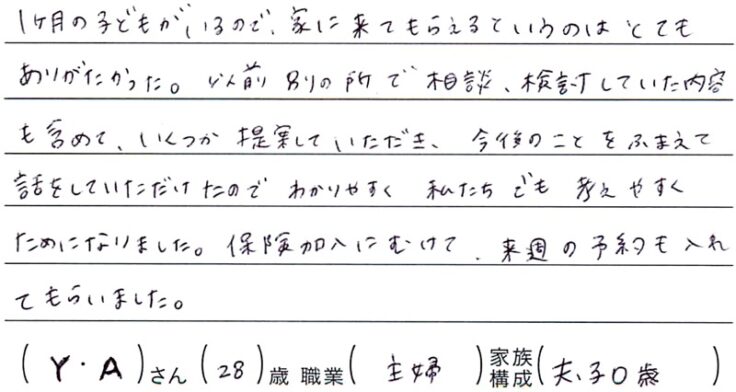 1ヶ月の子どもがいるので、家に来てもらえるというのはとても
ありがたかった。以前別の所で相談、検討していた内容
も含めて、いくつか提案していただき、今後のことをふまえて
話をしていただけたのでわかりやすく私たちでも考えやすく
ためになりました。保険加入にむけて、来週の予約も入れ
てもらいました。
(Y・A)さん(28)歳 職業(主婦)家族構成(夫、子0歳)